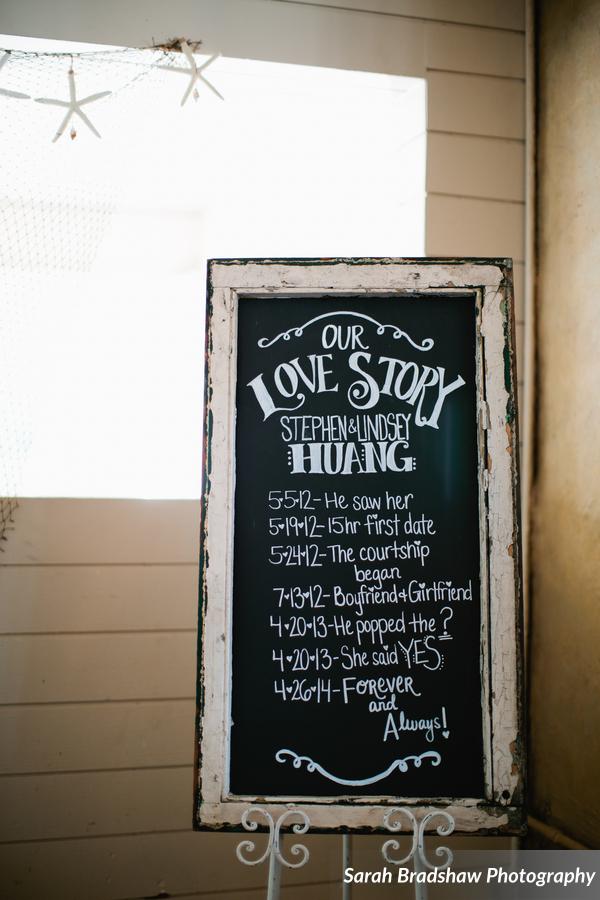 OUR
LOVE STORY
STEPHEN & LINDSEY
HUANG
5·5·12-He saw her
5♥19♥12-15hr first date
5♥24♥12-The courtship
began
7♥13♥12-Boyfriend+Girlfriend
4♥20♥13-He popped the ?
4♥20♥13-She said YES
4♥26♥14-FOREVER
and
Always!
Sarah Bradshaw Photography